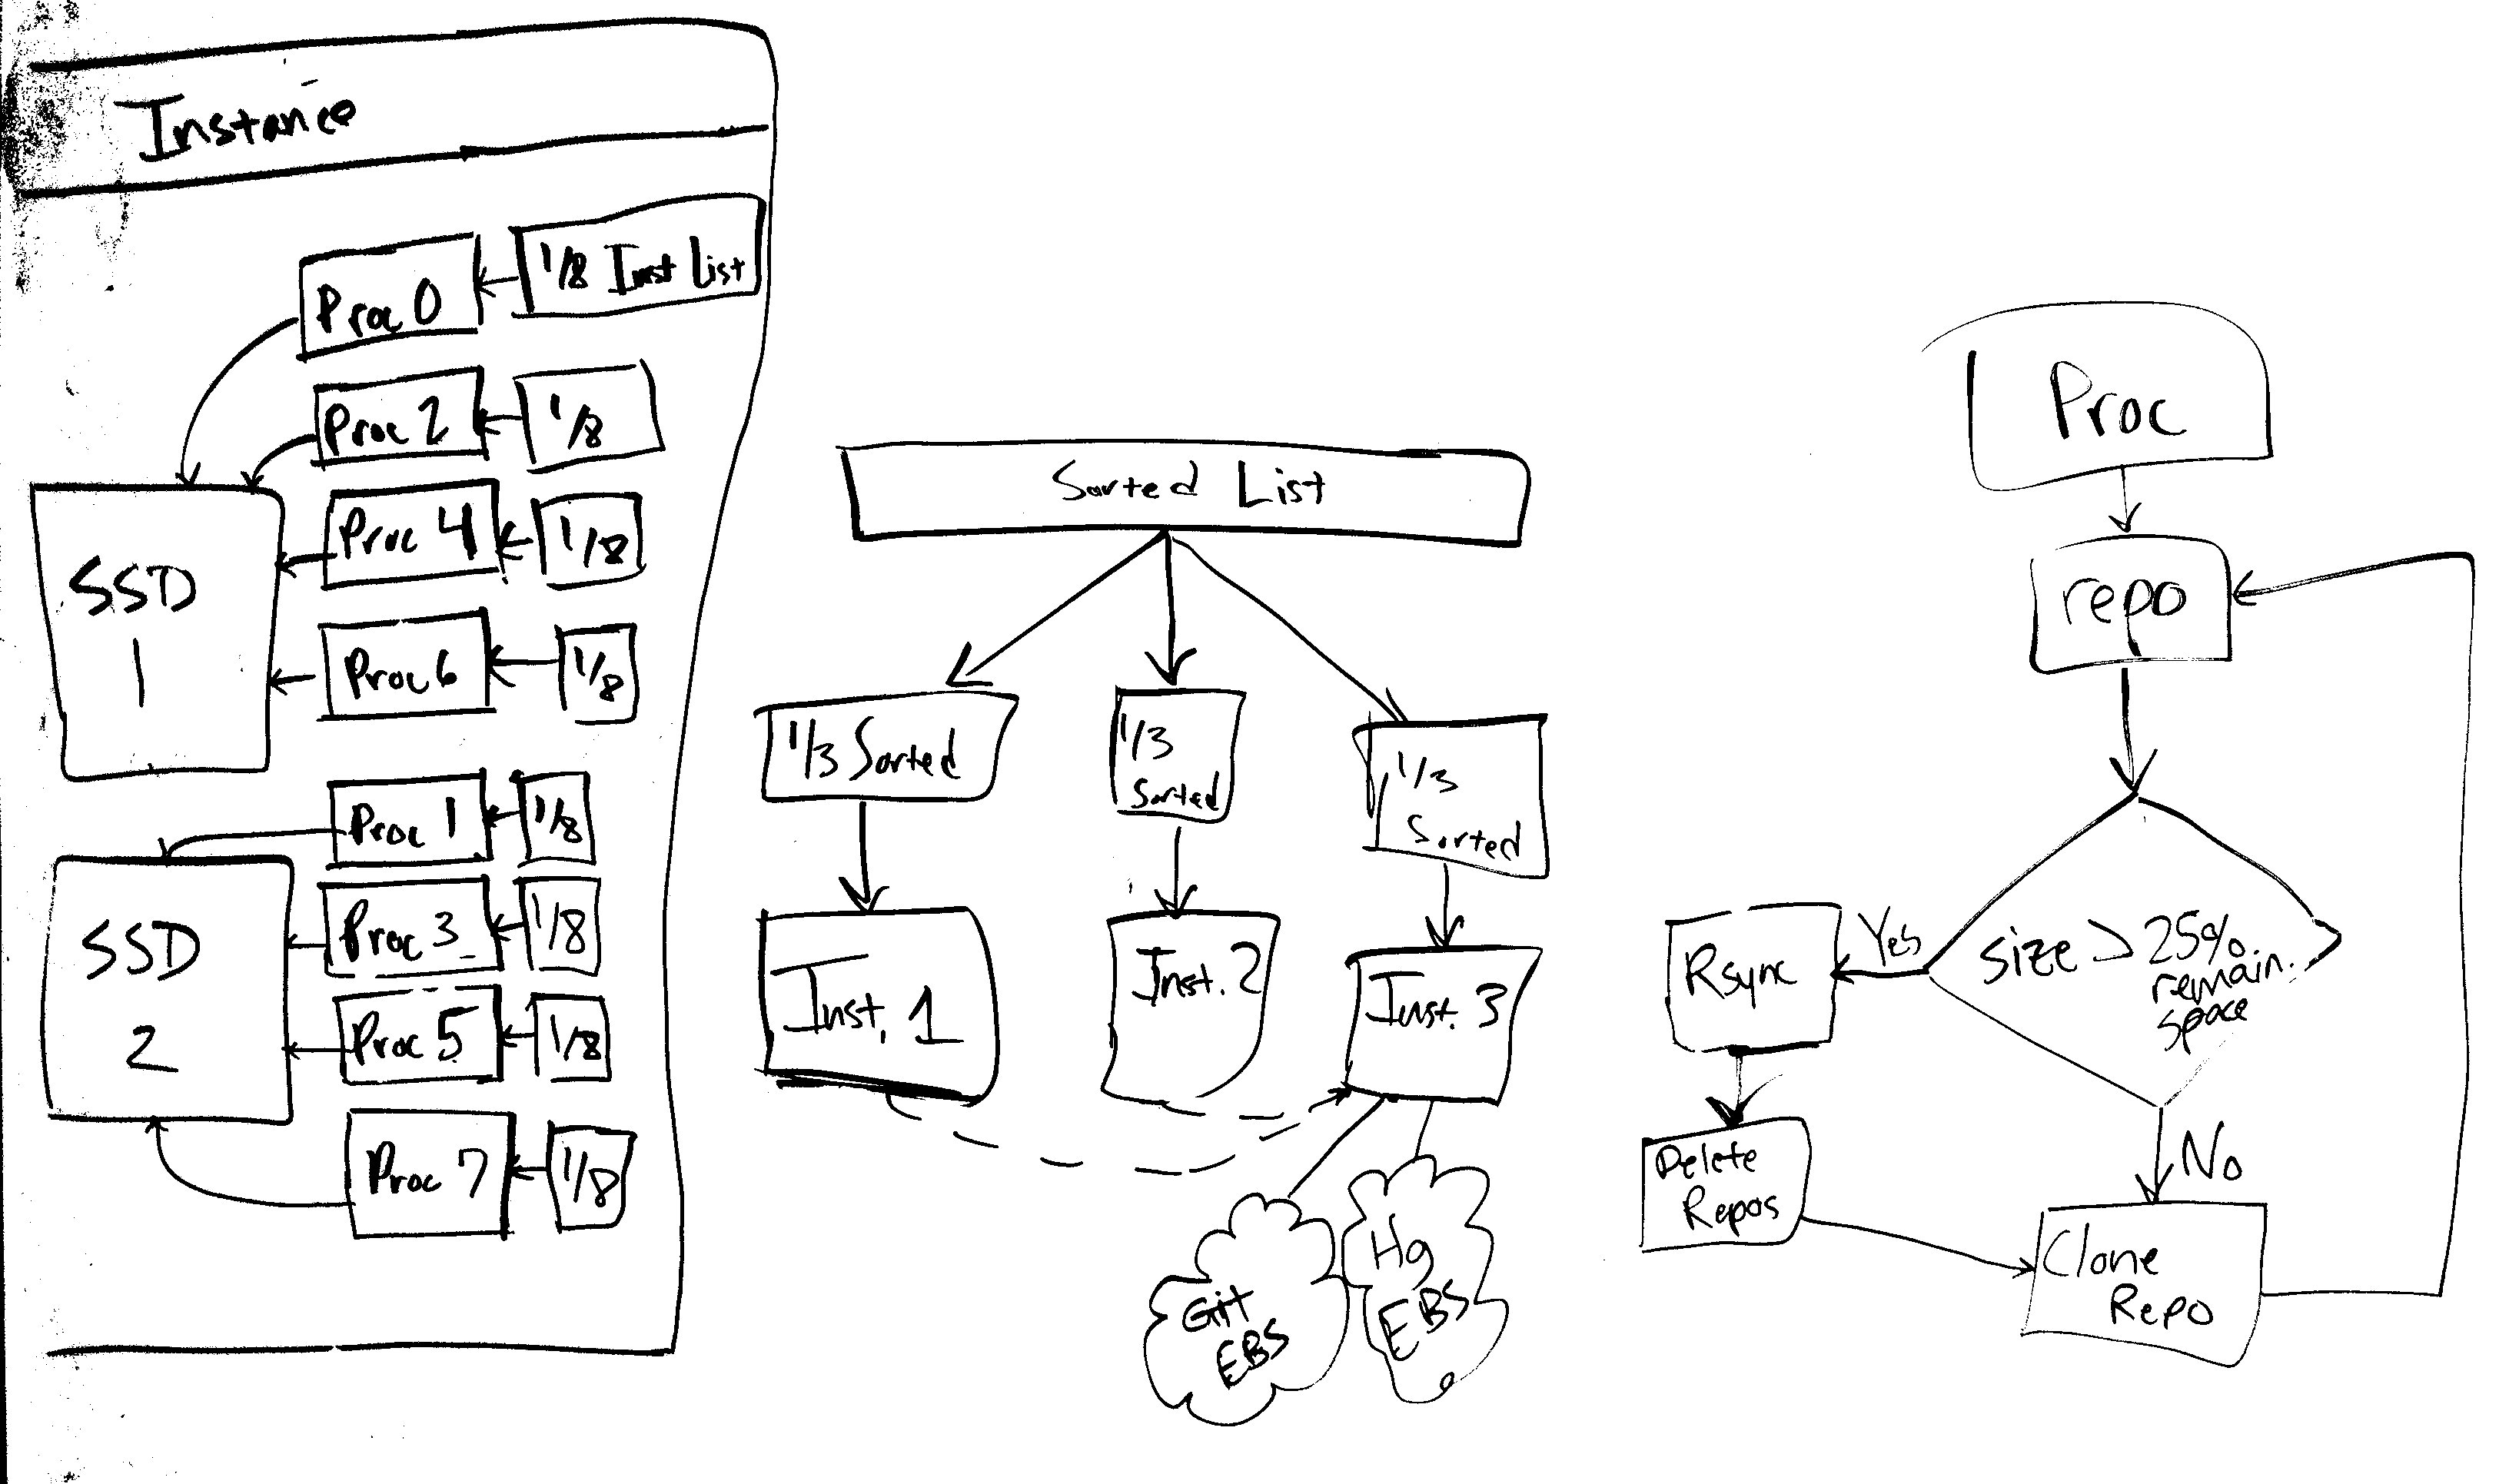 Instance
Proc 0
1/8 Inst List
Proc 2
1/8
Proc 4
1/8
Proc 6
1/8
SSD
1
Proc 1
1/8
Proc 3
1/8
Proc 5
1/8
Proc 7
1/8
SSD
2
Sorted List
1/3 Sorted
1/3
Sorted
1/3
Sorted
Inst. 1
Inst. 2
Inst. 3
Git
EBS
Hg
EBS
Proc
repo
size > 25%
remain.
space
Yes
Rsync
Delete
Repos
No
Clone
Repo